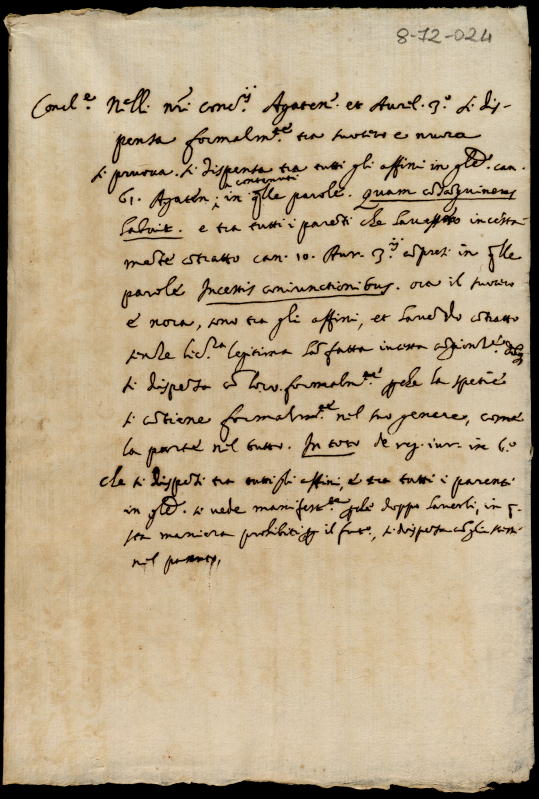 8-72-024
Concl.e Nelli nri concij Agaten. et Aurel. 3.o si dis-
pensa formalm.te tra suocero e nuora
si pruova. si dispensa tra tutti gli affini in can.
61. Agaten; contenuti in qlle parole. quam cōsāguineus
habuit. e tra tutti i pareti che havessero incesta-
mēte cōtratto can. 10. Aur. 3.ij cōpresi in qlle
parole Incestis coniunctionibus. ora il suocero
e nora, sono tra gli affini, et havēdo cōtratto
senza lic.za legitima hāo fatta incesta
si dispēsa cō loro formalm.te pche la spetie
si cōtiene formalm.te nel suo genere, come
la parte nel tutto. In toto de reg. iur. in 6.o
che si dispēsi tra tutti gli affini, e tra tutti i parenti
in si vede manifest.te pche doppo haverli, in q-
sta maniera prohibiti p il fut.o, si dispēsa
nel passato,